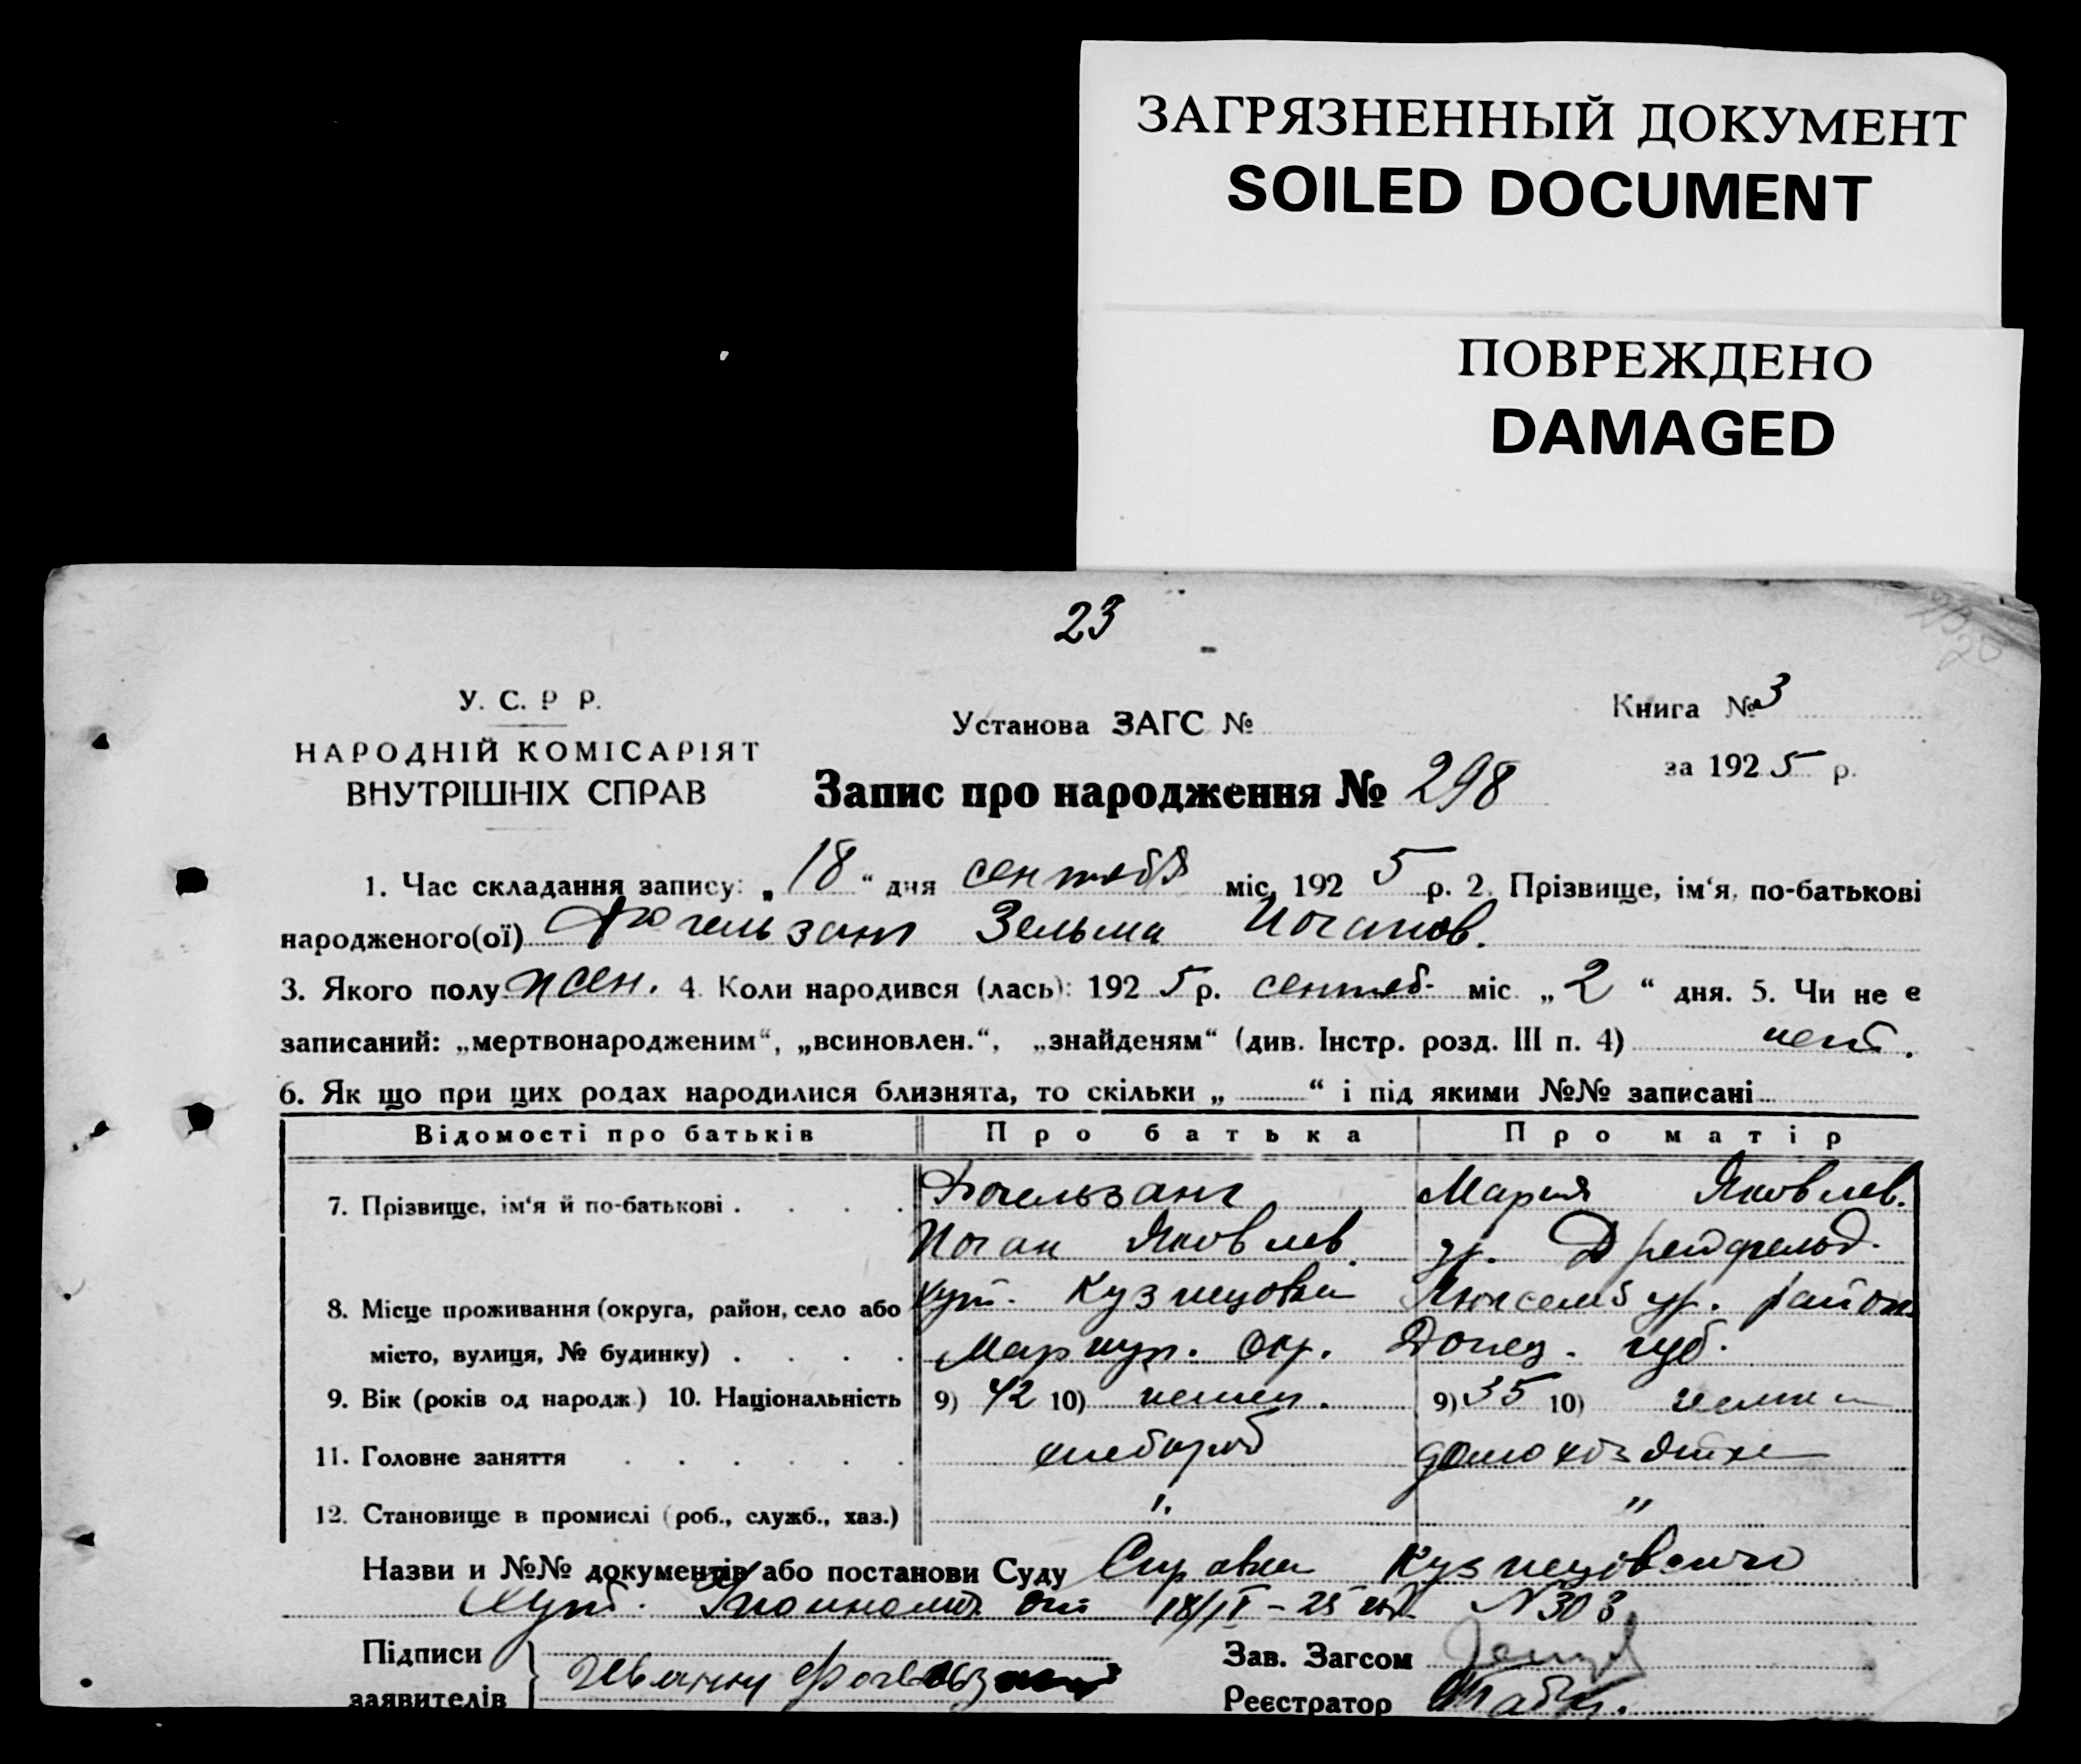 ЗАГРЯЗНЕННЫЙ ДОКУМЕНТ
SOILED DOCUMENT
ПОВРЕЖДЕНО
DAMAGED
23
У. С. Р Р.
НАРОДНІЙ КОМІСАРІЯТ
ВНУТРІШНІХ СПРАВ
Установа ЗАГС №
Книга № 3
за 1925 р.
Запис про народження № 298
1. Час складання запису: „18“ дня сентября міс. 1925 р. 2. Прізвище, ім‘я, по-батькові
народженого(ої) Фогельзанг Зельма Иоганов.
3. Якого полу жен. 4. Коли народився (лась): 1925 р. сентяб. міс. „2“ дня. 5. Чи не є
записаний: „мертвонародженим“, „всиновлен.“, „знайденям“ (див. Інстр. розд. III п. 4) нет.
6. Як що при цих родах народилися близнята, то скільки „ “ і під якими №№ записані
Відомості про батьків Про батька Про матір
7. Прізвище, ім‘я й по-батькові . . . . Фогельзанг Мария Яковлев.
Иоган Яковлев
8. Місце проживання (округа, район, село або хут. Кузнецовка район
місто, вулиця, № будинку) . . . . Мариуп. окр. Донец. губ.
9. Вік (років од народж.) 10. Національність 9) 42 10) немец. 9) 35 10) немка
11. Головне заняття . . . . . . хлебороб домохозяйка
12. Становище в промислі (роб., служб., хаз.) " "
Назви и №№ документів або постанови Суду Справка Кузнецовского
Хут. от 18/IX-25 N 303
Підписи
заявителів
Зав. Загсом
Реєстратор